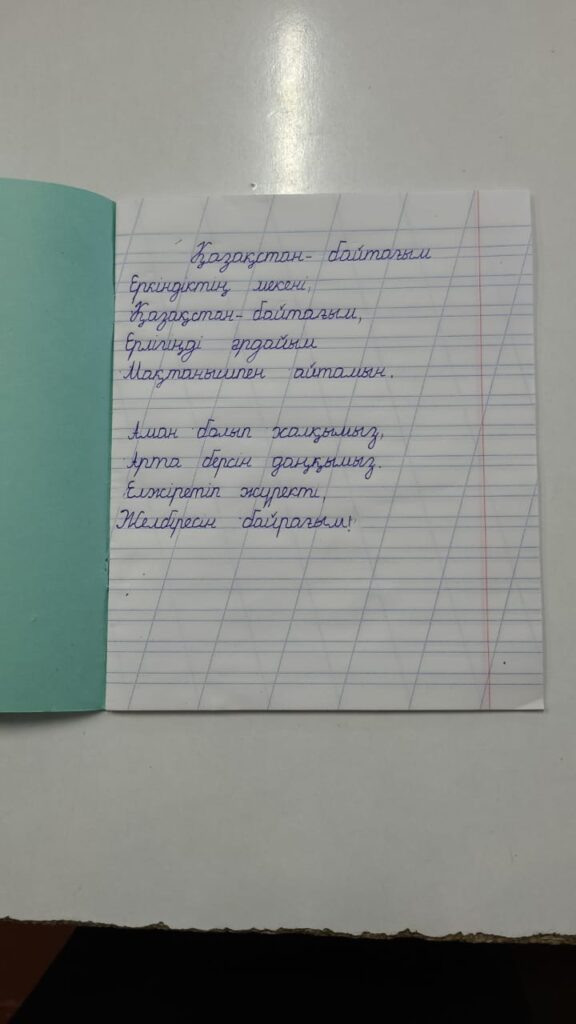 Қазақстан- байтағым
Еркіндіктің мекені,
Қазақстан- байтағым,
Ерлігіңді әрдайым
Мақтанышпен айтамын.
Аман болып халқымыз,
Арта берсін даңқымыз.
Елжіретіп жүректі,
Желбіресін байрағым!